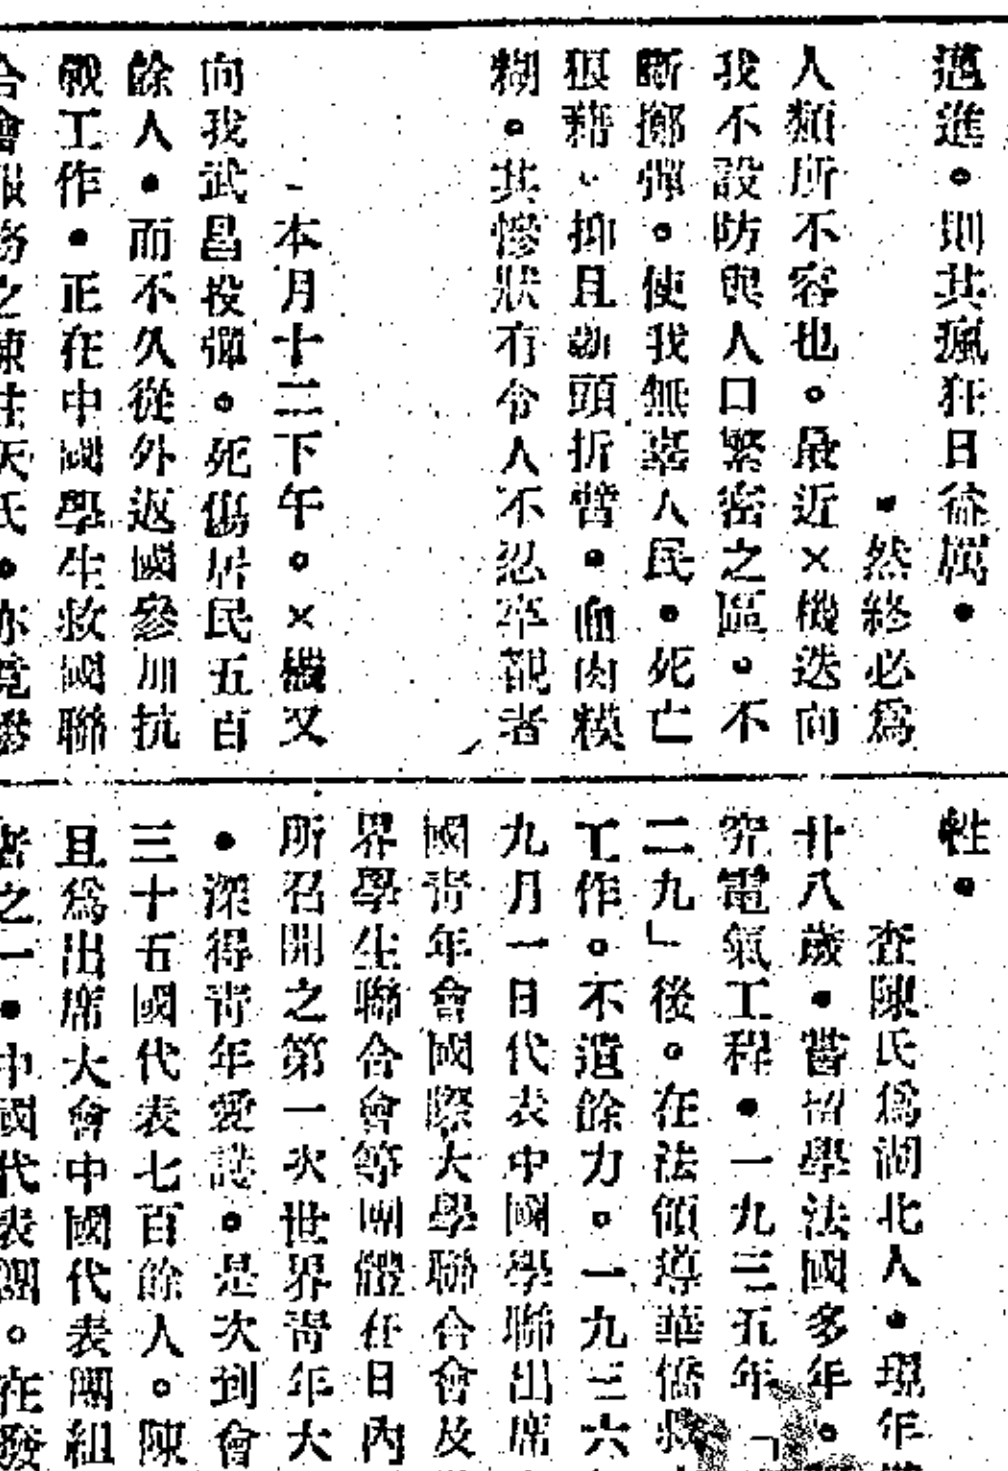 邁進。則其瘋狂日益厲。
然終必爲
人類所不容也。最近×機迭向
我不設防與人口繁密之區。不
斷擲彈。使我無辜人民。死亡
狼藉、抑且斷頭折臂。血肉模
糊。其慘狀有令人不忍卒觀者
本月十二下午。×機又
向我武昌投彈。死傷居民五百
餘人。而不久從外返國參加抗
戰工作。正在中國學生救國聯
合會服務之陳柱天氏。亦竟慘
牲。
查陳氏爲湖北人。現年
廿八歲。嘗留學法國多年。
究電氣工程。一九三五年「
二九」後。在法領導華僑救
工作。不遺餘力。一九三六
九月一日代表中國學聯出席
國靑年會國際大學聯合會及
界學生聯合會等團體在日內
所召開之第一次世界靑年大
。深得靑年愛護。是次到會
三十五國代表七百餘人。陳
且爲出席大會中國代表團組
者之一。中國代表團。在發